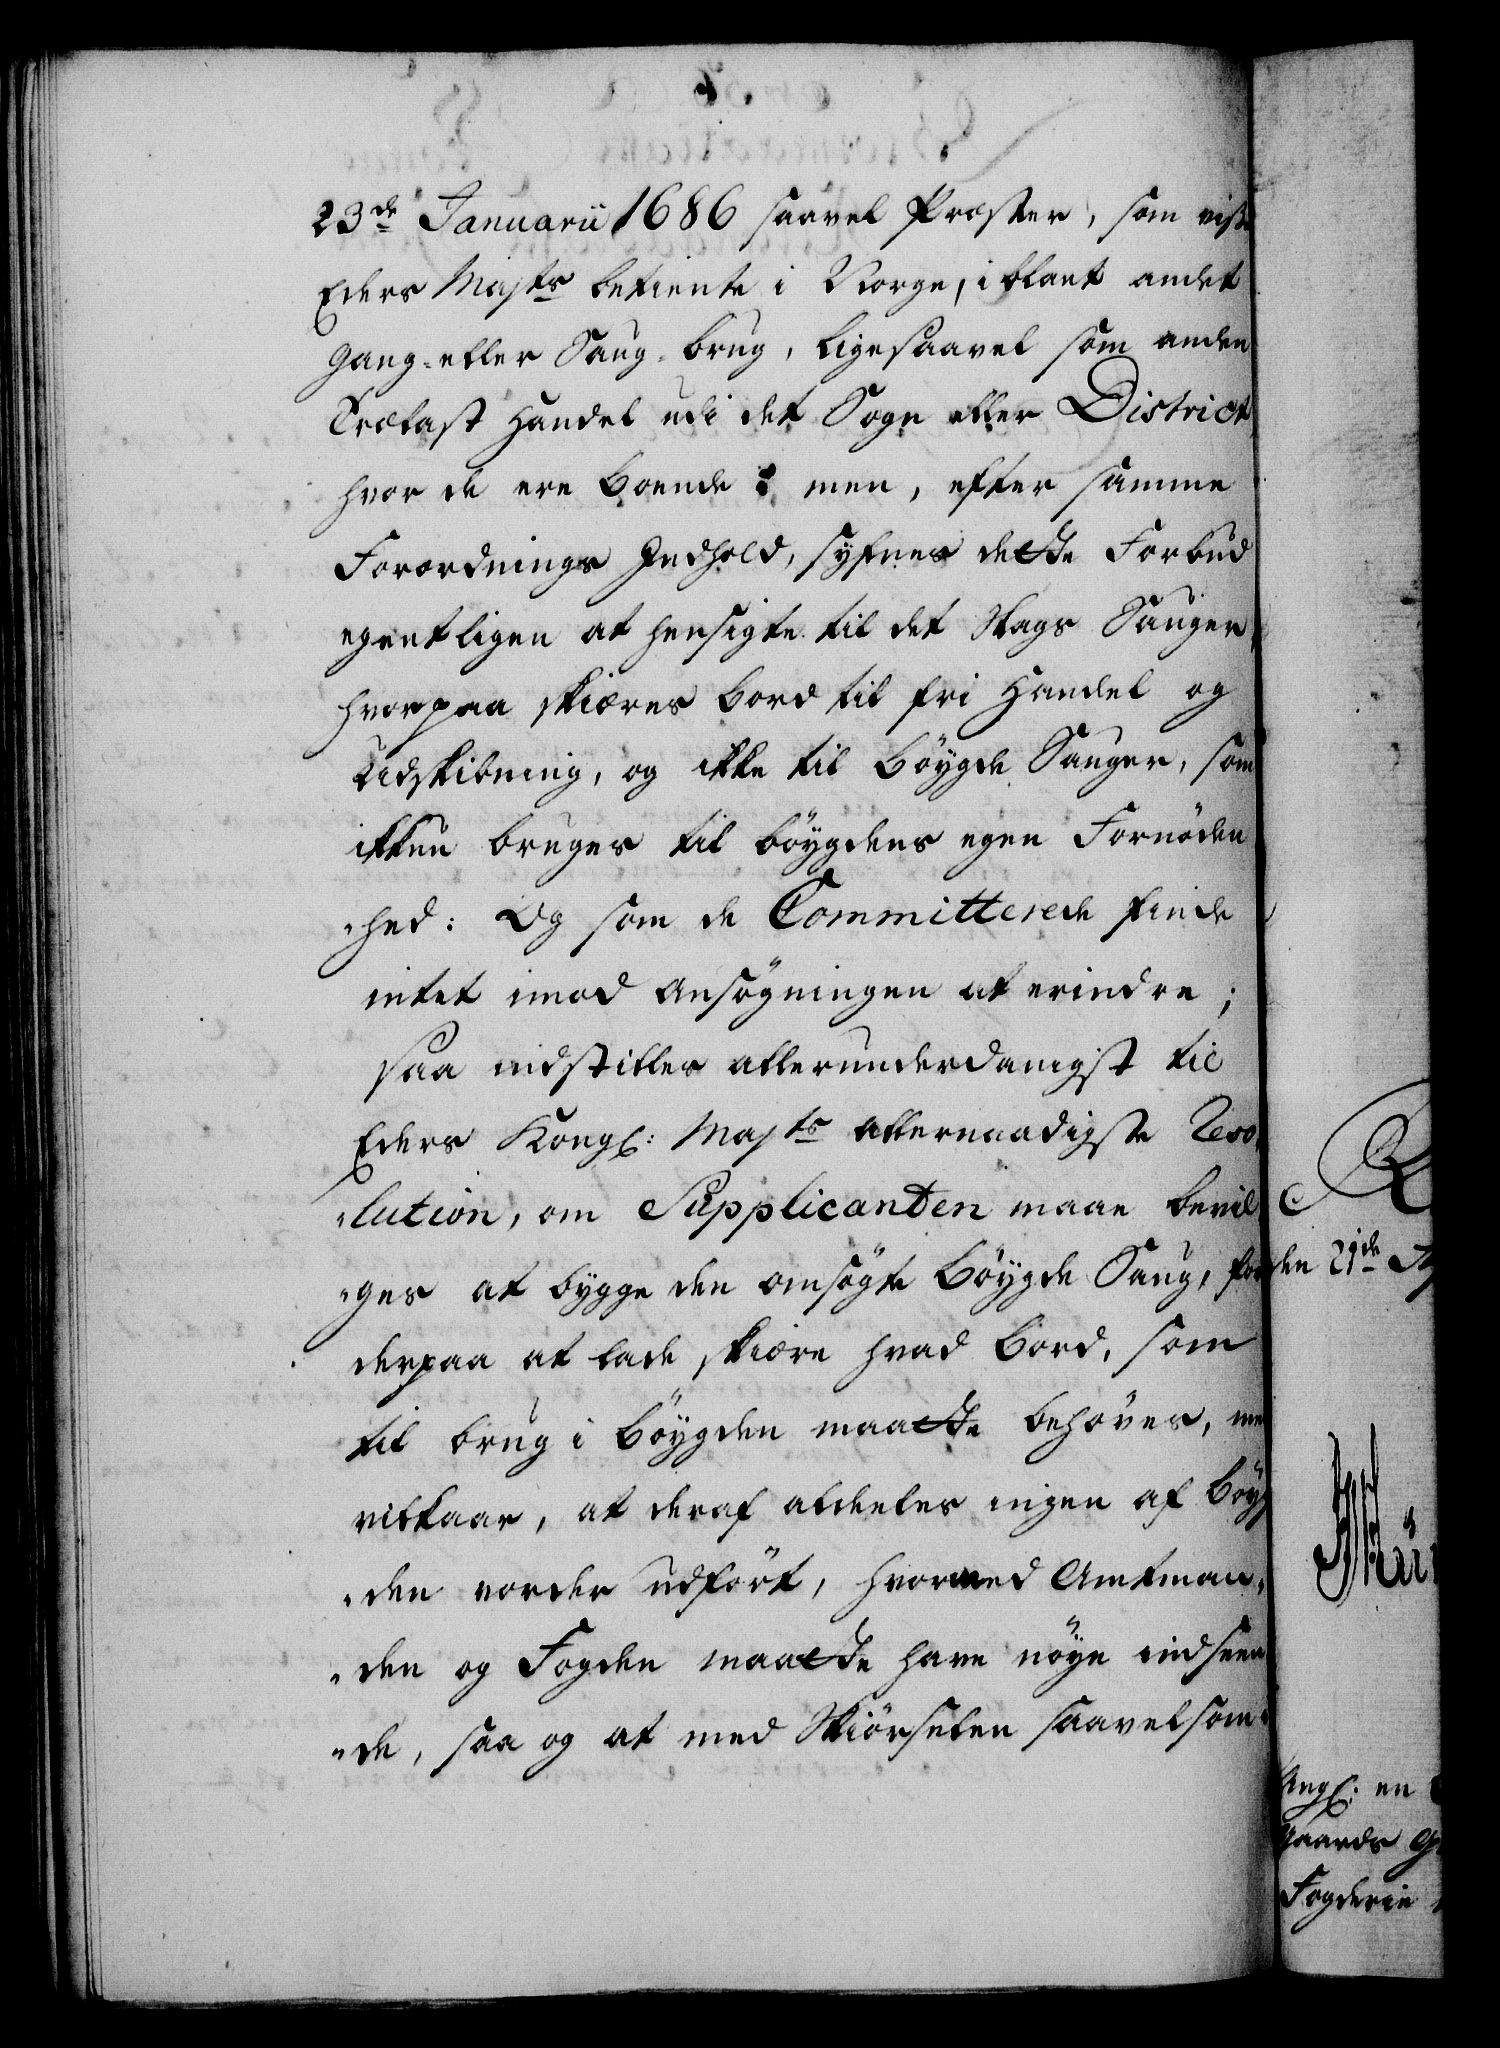 23de Januarii 1686 saavel Præster, som visse
Eders Majts betiente i Norge, iblant andet
Gang- eller Saug-brug, ligesaavel som anden
Trælast Handel udi det Sogn eller District
hvor de ere boende: men, efter samme
Forordnings Indhold, syfnes dette Forbud
egentligen at hensigte til det Slags Sauger,
hvorpaa skiæres Bord til fri Handel og
Udskibning, og ikke til Böygde Sauger, som
ikkun bruges til böygdens egen Fornöden
hed: Og som de Committerede finde
intet imod Ansögningen at erindre;
saa indstilles allerunderdanigst til
Eders Kongl: Majts allernaadigste Reso
lution, om Supplicanten maae bevil
ges at bygge den omsögte Böygde Saug, for
derpaa at lade skiære hvad Bord, som
til brug i Böygden maatte behöves, med
vilkaar, at deraf aldeeles ingen af Böyg
den vorder udfört, hvormed Amtman
den og Fogden maatte have nöye indseen
de, saa og at med Skiörselen saavelsom
den 21de
Angl: en
Gaards
Fogderie